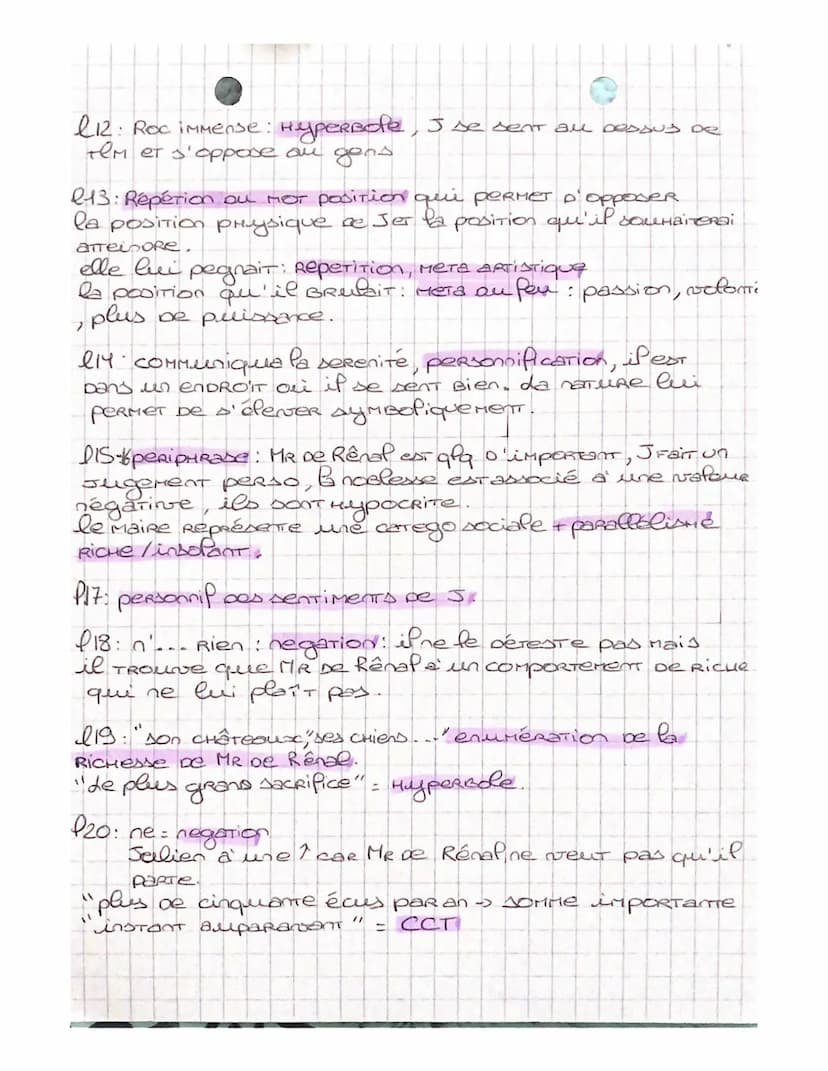 l12: Roc immense: Hyperbole, J se sent au dessus de
tlm et s'oppose au gens
l13: Répétion du mot position qui permet d'opposer
la position physique de J et la position qu'il souhaiterai
atteindre.
elle lui pegnait: Répétition, meta artistique
la position qu'il brulait: meta du feu: passion, volonté
, plus de puissance.
l14: communiqua la serenité, personnification, il est
dans un endroit où il se sent bien. La nature lui
permet de s'élever symboliquement.
l15-16 periphrase: Mr de Rênal est qlq d'important, J fait un
jugement perso, la noblesse est associé à une valeur
négative, ils sont hypocrite.
le maire représette une catego sociale + parallélisme
riche/insolant.
l17: personnif des sentiments de J.
l18: n'... rien: negation: il ne le déteste pas mais
il trouve que Mr de Rênal a un comportement de riche
qui ne lui plaît pas.
l19: "son châteaux", "ses chiens..." enumération de la
richesse de Mr de Rênal.
"Le plus grand sacrifice" = Hyperbole.
l20: ne = negation
Julien à une ↑ car Mr de Rénal, ne veut pas qu'il
parte.
"plus de cinquante écus par an -> somme importante
"instant auparavant" = CCT